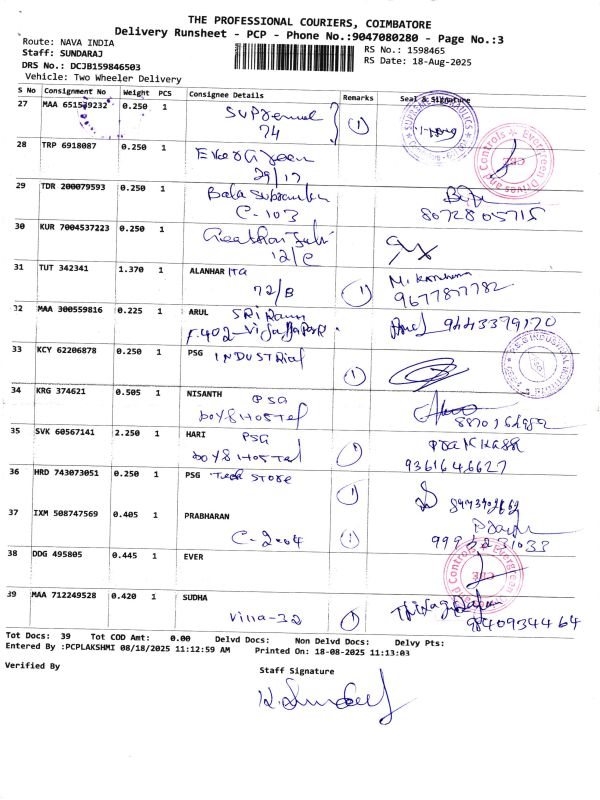 THE PROFESSIONAL COURIERS, COIMBATORE
Delivery Runsheet - PCP - Phone No.:9047080280 - Page No.:3
Route: NAVA INDIA
RS No.: 1598465
Staff: SUNDARAJ
RS Date: 18-Aug-2025
DRS No.: DCJB159846503
Vehicle: Two Wheeler Delivery
S No Consignment No Weight PCS Consignee Details Remarks Seal & Signature
27 MAA 651539232 0.250 1
74 (1)
28 TRP 6918087 0.250 1 Evergreen
29/17
29 TDR 200079593 0.250 1
C-103 8072805715
30 KUR 7004537223 0.250 1
12/C
31 TUT 342341 1.370 1 ALANHAR ITG
72/B (1) 9677877782
32 MAA 300559816 0.225 1 ARUL SRI Ram
F.402- 9443379170
33 KCY 62206878 0.250 1 PSG INDUSTRIAL
(1)
34 KRG 374621 0.505 1 NISANTH PSG
boys Hostel
35 SVK 60567141 2.250 1 HARI PSG
boys Hostel (1) 9361646627
36 HRD 743073051 0.250 1 PSG Tech STORE
(1)
37 IXM 508747569 0.405 1 PRABHARAN
C-2004 (1)
38 DDG 495805 0.445 1 EVER
39 MAA 712249528 0.420 1 SUDHA
Villa-32 (1) 9840934464
Tot Docs: 39 Tot COD Amt: 0.00 Delvd Docs: Non Delvd Docs: Delvy Pts:
Entered By :PCPLAKSHMI 08/18/2025 11:12:59 AM Printed On: 18-08-2025 11:13:03
Verified By
Staff Signature